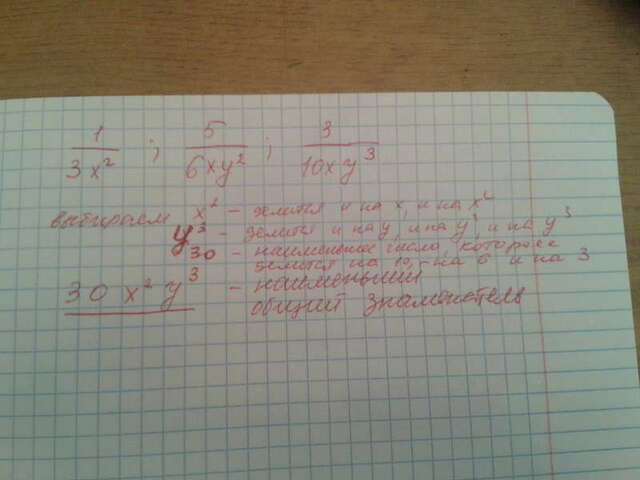 1/3x² ; 5/6xy² ; 3/10xy³
выбираем x² - делится и на x, и на x²
y³ - делится и на y, и на y², и на y³
30 - наименьшее число, которое
делится на 10, на 6 и на 3
30 x² y³ - наименьший
общий знаменатель